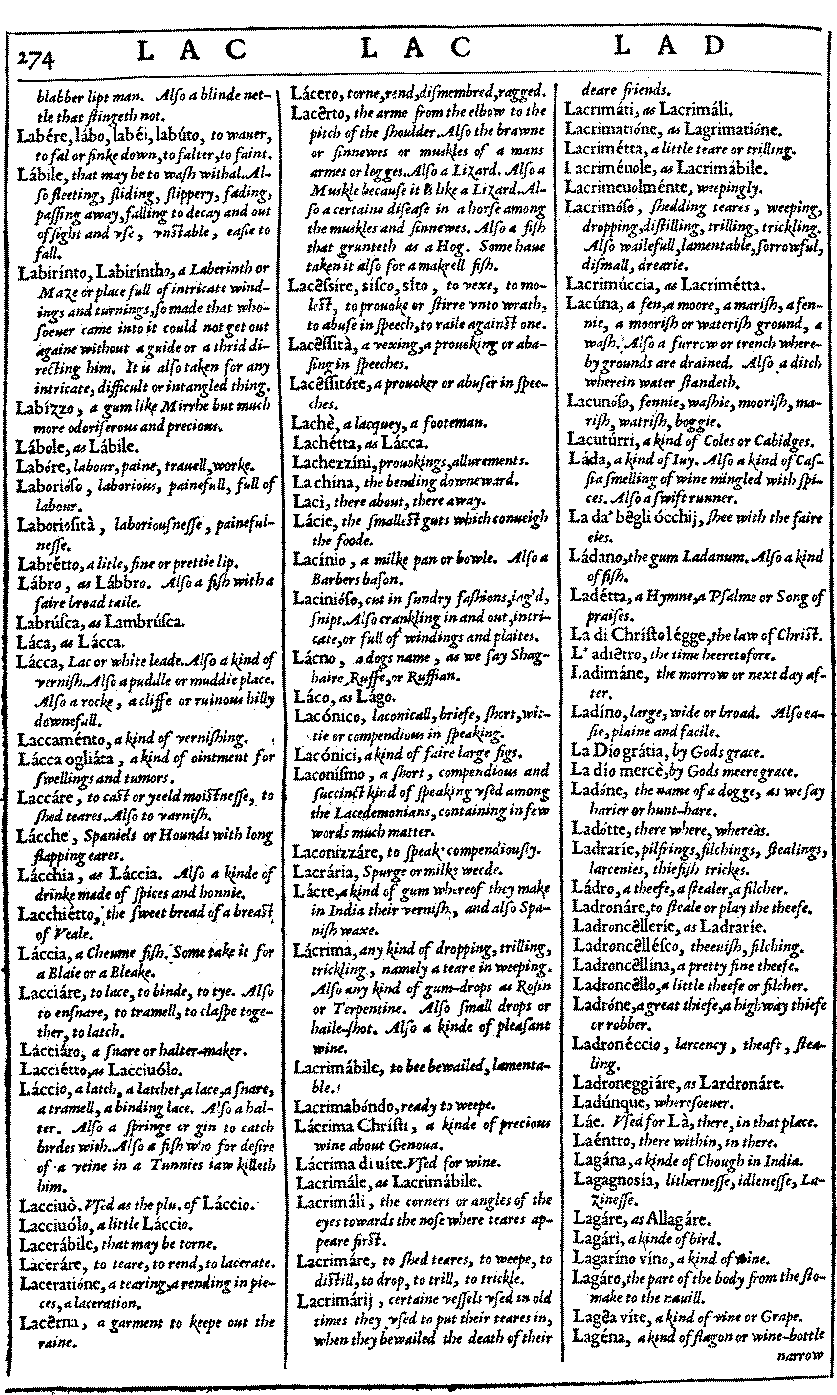 274 L A C L A C L A D
blabber lipt man. Alſo a blinde net-
tle that ſtingeth not.
Labére, lábo, labéi, labúto, to wauer,
to fal or ſinke down, to falter, to faint.
Lábile, that may be to waſh withal. Al-
ſo fleeting, ſliding, ſlippery, fading,
paſſing away, falling to decay and out
of ſight and vſe, vnſtable, eaſie to
fall.
Labirinto, Labirintho, a Laberinth or
Maze or place full of intricate wind-
ings and turnings, ſo made that who-
ſoeuer came into it could not get out
againe without a guide or a thrid di-
recting him. It is alſo taken for any
intricate, difficult or intangled thing.
Labízzo, a gum like Mirrhe but much
more odoriferous and precious.
Lábole, as Lábile.
Labóre, labour, paine, trauell, worke.
Laborióſo, laborious, painefull, full of
labour.
Laborioſità, laboriouſneſſe, paineful-
neſſe.
Labrétto, a litle, fine or prettie lip.
Lábro, as Lábbro. Alſo a fiſh with a
faire broad taile.
Labrúſca, as Lambrúſca.
Láca, as Lácca.
Lácca, Lac or white leade. Alſo a kind of
verniſh. Alſo a puddle or muddie place.
Alſo a rocke, a cliffe or ruinous hilly
downefall.
Laccaménto, a kind of verniſhing.
Lácca ogliáta, a kind of ointment for
ſwellings and tumors.
Laccáre, to caſt or yeeld moiſtneſſe, to
ſhed teares. Alſo to varniſh.
Lácche, Spaniels or Hounds with long
flapping eares.
Lácchia, as Láccia. Alſo a kinde of
drinke made of ſpices and honnie.
Lacchiétto, the ſweet bread of a breaſt
of Veale.
Láccia, a Cheuine fiſh. Some take it for
a Blaie or a Bleake.
Lacciáre, to lace, to binde, to tye. Alſo
to enſnare, to tramell, to claſpe toge-
ther, to latch.
Lácciáro, a ſnare or halter-maker.
Lacciétto, as Lacciuólo.
Láccio, a latch, a latchet, a lace, a ſnare,
a tramell, a binding lace. Alſo a hal-
ter. Alſo a ſpringe or gin to catch
birdes with. Alſo a fiſh who for deſire
of a veine in a Tunnies iaw killeth
him.
Lacciuò. Vſed as the plu. of Láccio.
Lacciuólo, a little Láccio.
Lacerábile, that may be torne.
Laceráre, to teare, to rend, to lacerate.
Laceratióne, a tearing, a rending in pie-
ces, a laceration.
Lacêrna, a garment to keepe out the
raine.
Lácero, torne, rend, diſmembred, ragged.
Lacêrto, the arme from the elbow to the
pitch of the ſhoulder. Alſo the brawne
or ſinnewes or muskles of a mans
armes or legges. Alſo a Lizard. Alſo a
Muskle becauſe it is like a Lizard. Al-
ſo a certaine diſeaſe in a horſe among
the muskles and ſinnewes. Alſo a fiſh
that grunteth as a Hog. Some haue
taken it alſo for a makrell fiſh.
Lacêſſire, siſco, síto, to vexe, to mo-
leſt, to prouoke or ſtirre vnto wrath,
to abuſe in ſpeech, to raile againſt one.
Lacêſſità, a vexing, a prouoking or abu-
ſing in ſpeeches.
Lacêſſitóre, a prouoker or abuſer in ſpee-
ches.
Lachè, a lacquey, a footeman.
Lachétta, as Lácca.
Lachezzíni, prouokings, allurements.
La china, the bending downeward.
Laci, there about, there away.
Lácie, the ſmalleſt guts which conueigh
the foode.
Lacínio, a milke pan or bowle. Alſo a
Barbers baſon.
Lacinióſo, cut in ſundry faſhions, iag'd,
ſnipt. Alſo crankling in and out, intri-
cate, or full of windings and plaites.
Lácno, a dogs name, as we ſay Shag-
haire, Ruffe, or Ruffian.
Láco, as Lágo.
Lacónico, laconicall, briefe, ſhort, wit-
tie or compendious in ſpeaking.
Lacónici, a kind of faire large figs.
Laconíſmo, a ſhort, compendious and
ſuccinct kind of ſpeaking vſed among
the Lacedemonians, containing in few
words much matter.
Laconizzáre, to ſpeak compendiouſly.
Lacrária, Spurge or milke weede.
Lácre, a kind of gum whereof they make
in India their verniſh, and alſo Spa-
niſh waxe.
Lácrima, any kind of dropping, trilling,
trickling, namely a teare in weeping.
Alſo any kind of gum-drops as Roſin
or Terpentine. Alſo ſmall drops or
haile-ſhot. Alſo a kinde of pleaſant
wine.
Lacrimábile, to bee bewailed, lamenta-
ble.
Lacrimabóndo, ready to weepe.
Lácrima Chriſti, a kinde of precious
wine about Genoua.
Lácrima di uíte. Vſed for wine.
Lacrimále, as Lacrimábile.
Lacrimáli, the corners or angles of the
eyes towards the noſe where teares ap-
peare firſt.
Lacrimáre, to ſhed teares, to weepe, to
diſtill, to drop, to trill, to trickle.
Lacrimárij, certaine veſſels vſed in old
times they vſed to put their teares in,
when they bewailed the death of their
deare friends.
Lacrimáti, as Lacrimáli.
Lacrimatióne, as Lagrimatióne.
Lacrimétta, a little teare or trilling.
Lacriméuole, as Lacrimábile.
Lacrimeuolménte, weepingly.
Lacrimóſo, ſhedding teares, weeping,
dropping, diſtilling, trilling, trickling.
Alſo wailefull, lamentable, ſorrowful,
diſmall, drearie.
Lacrimúccia, as Lacrimétta.
Lacúna, a fen, a moore, a mariſh, a fen-
nie, a mooriſh or wateriſh ground, a
waſh. Alſo a furrow or trench where-
by grounds are drained. Alſo a ditch
wherein water ſtandeth.
Lacunóſo, fennie, waſhie, mooriſh, ma-
riſh, watriſh, boggie.
Lacutúrri, a kind of Coles or Cabidges.
Láda, a kind of Iuy. Alſo a kind of Caſ-
ſia ſmelling of wine mingled with ſpi-
ces. Alſo a ſwift runner.
La da' bêgli ócchij, ſhee with the faire
eies.
Ládano, the gum Ladanum. Alſo a kind
of fiſh.
Ladétta, a Hymne, a Pſalme or Song of
praiſes.
La di Chriſto légge, the law of Chriſt.
L' adiêtro, the time heeretofore.
Ladimáne, the morrow or next day af-
ter.
Ladíno, large, wide or broad. Alſo ea-
ſie, plaine and facile.
La Dio grátia, by Gods grace.
La dio mercè, by Gods meere grace.
Ladóne, the name of a dogge, as we ſay
harier or hunt-hare.
Ladótte, there where, whereàs.
Ladraríe, pilfrings, filchings, ſtealings,
larcenies, thiefiſh trickes.
Ládro, a theefe, a ſtealer, a filcher.
Ladronáre, to ſteale or play the theefe.
Ladroncêllerie, as Ladraríe.
Ladroncêlléſco, theeuiſh, filching.
Ladroncêllína, a pretty fine theefe.
Ladroncêllo, a little theefe or filcher.
Ladróne, a great thiefe, a high way thiefe
or robber.
Ladronéccio, larcency, theaft, ſtea-
ling.
Ladroneggiáre, as Lardronáre.
Ladúnque, whereſoeuer.
Láe. Vſed for Là, there, in that place.
Laéntro, there within, in there.
Lagána, a kinde of Chough in India.
Lagagnoſía, litherneſſe, idleneſſe, La-
zineſſe.
Lagáre, as Allagáre.
Lagári, a kinde of bird.
Lagaríno víno, a kind of wine.
Lagáro, the part of the body from the ſto-
make to the nauill.
Lagêa víte, a kind of vine or Grape.
Lagéna, a kind of flagon or wine-bottle
narrow